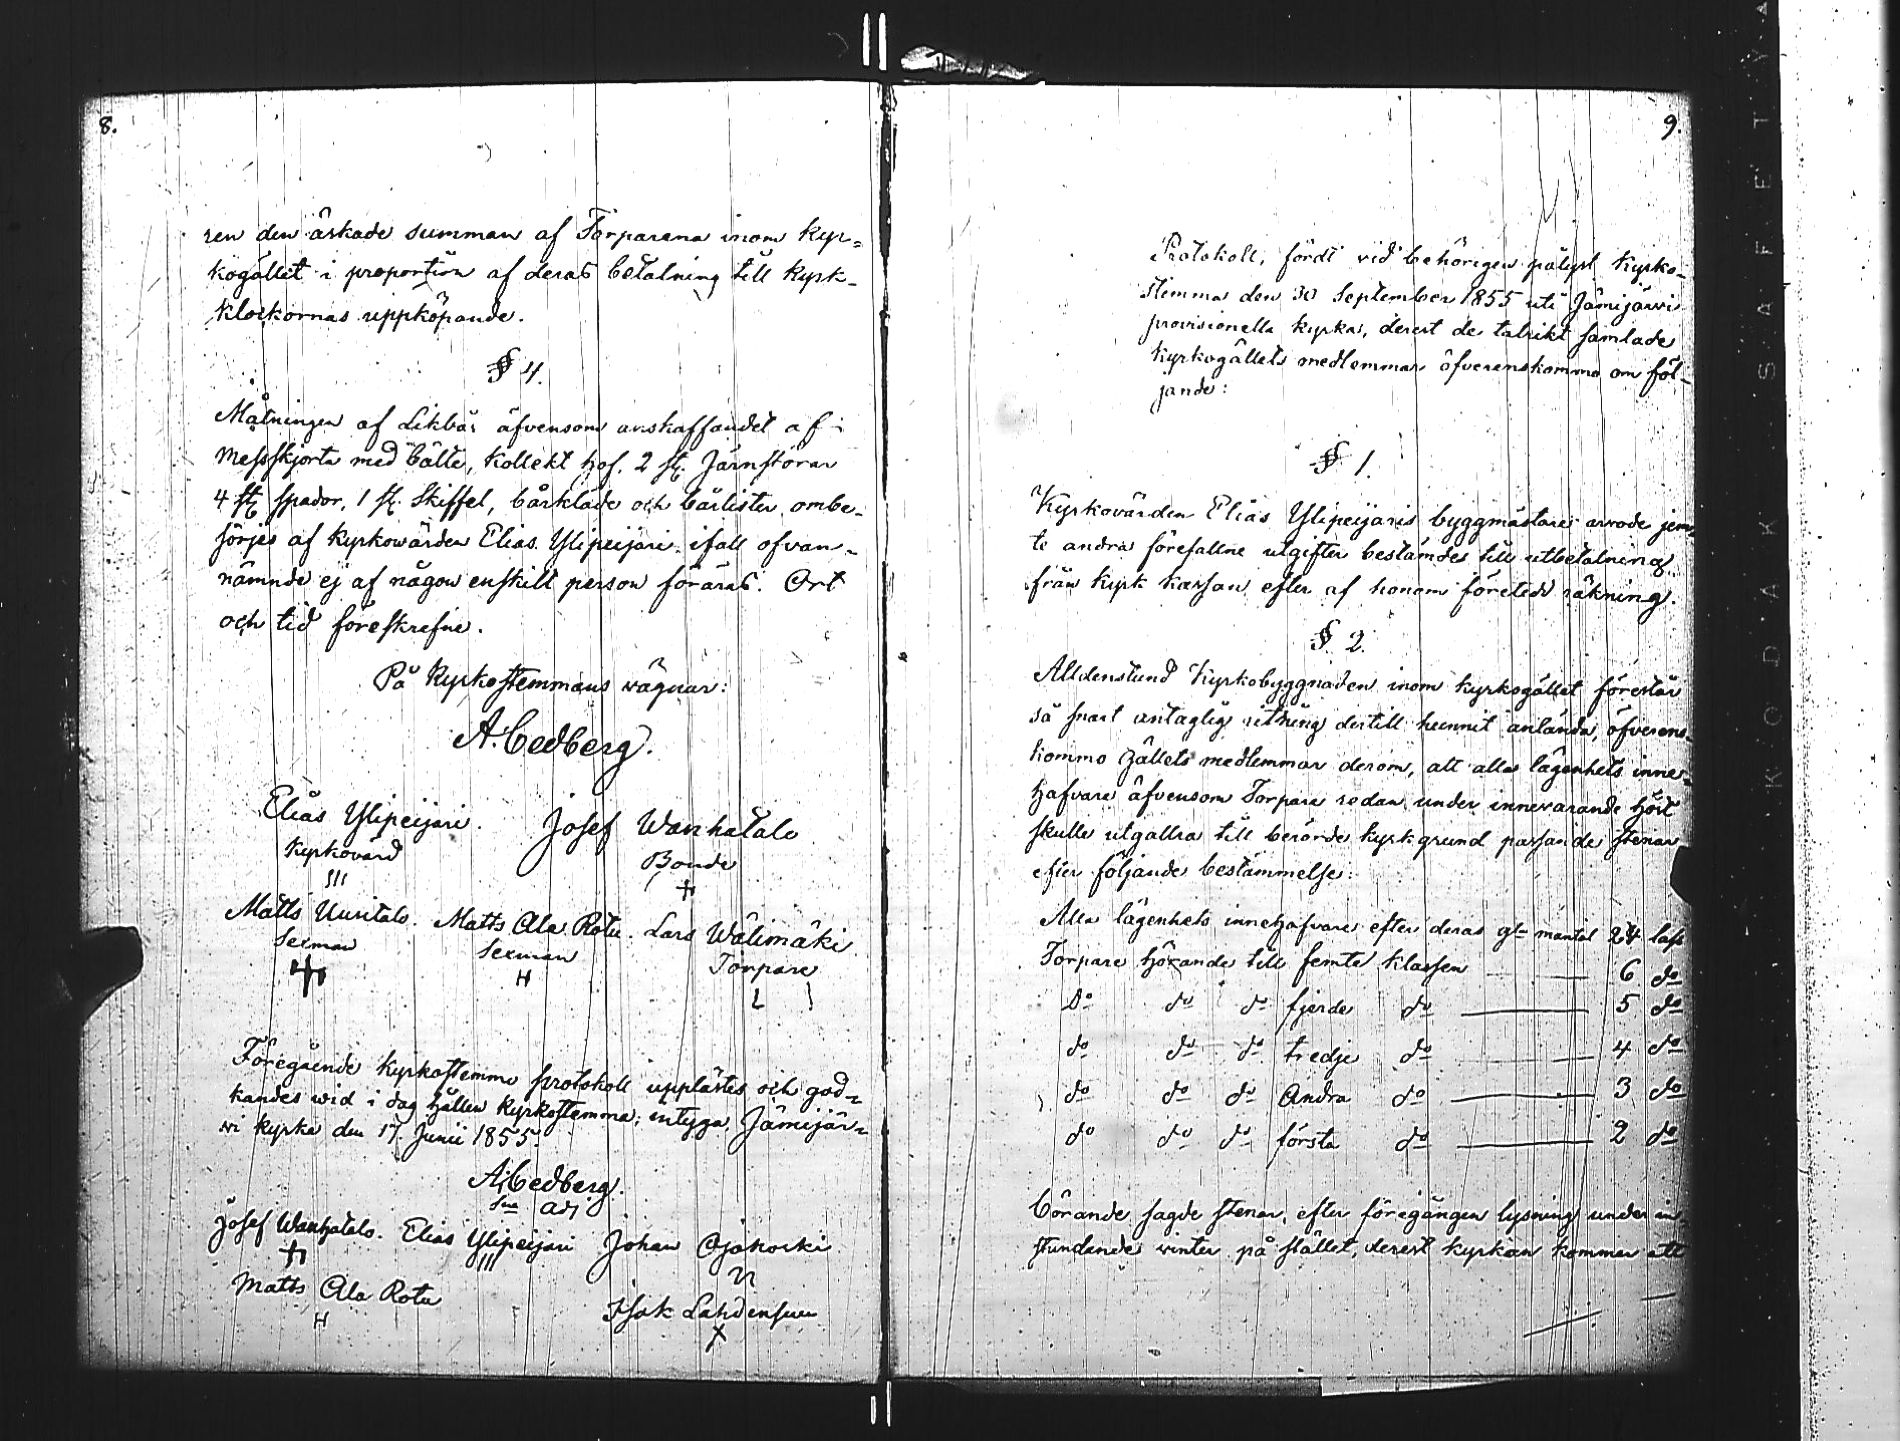 8.
ren den äskade summan af Torparena inom kyr=
kogället i proportion af deras betalning till kyrk-
klockornas uppköpande.
§ 4.
Målningen af Likbår äfvensom anskaffandet af
Messskjorta med bälte, kollekt hof. 2 st. Järnstörar
4 st. spador, 1 st. Skiffel, bårkläde och bårlister, ombe-
sörjes af Kyrkowärden Elias Ylipeijari, ifall ofvan-
nämnde ej af någon enskilt person föräras. Ort
och tid föreskrefne.
På Kyrkostemmans vägnar:
A. Cedberg.
Elias Ylipeijari. Josef Wanhatalo
Kyrkovärd Bonde
III
Matts Uusitalo. Matts Ala Rotu. Lars Wälimäki
Sexman Sexman Torpare
H
Föregående Kyrkostemmo protokoll upplästes och god=
kändes wid i dag hållen kyrkostemma; intyga Jämijär=
vi kyrka den 17 Junii 1855.
A. Cedberg.
adj
Josef Wanhatalo. Elias Ylipeijari Johan Ojakoski
III
Matts Ala Rotu Isak Lahdensuu
H X
9.
Protokoll, fördt vid behörigen pålyst Kyrko-
stemma den 30 September 1855 uti Jämijärvi
provisionella kyrka, derest de talrikt samlade
Kyrkogällets medlemmar öfverenskommo om föl-
jande:
§ 1.
Kyrkovärden Elias Ylipeijaris byggmästare arvode jem-
te andra förefallne utgifter bestämdes till utbetalning
från kyrk kassan efter af honom företedd räkning.
§ 2.
Alldenstund Kyrkobyggnaden inom kyrkogället förestår
så snart antaglig ritning dertill hunnit anlända, öfverens-
kommo gällets medlemmar derom, att alla lägenhets inne-
hafvare äfvensom Torpare redan under innevarande höst
skulle utgallra till berörde kyrkgrund passande stenar
efter följande bestämmelse:
Alla lägenhets innehafvare efter deras gla mantal 24 lass
Torpare hörande till femte klassen 6 do
Do do do fjerde do 5 do
do do do tredje do 4 do
do do do Andra do 3 do
do do do första do 2 do
börande sagde stenar, efter föregången lysning under in-
stundande vinter på stället, derest kyrkan kommer att
KODAK SAFETY